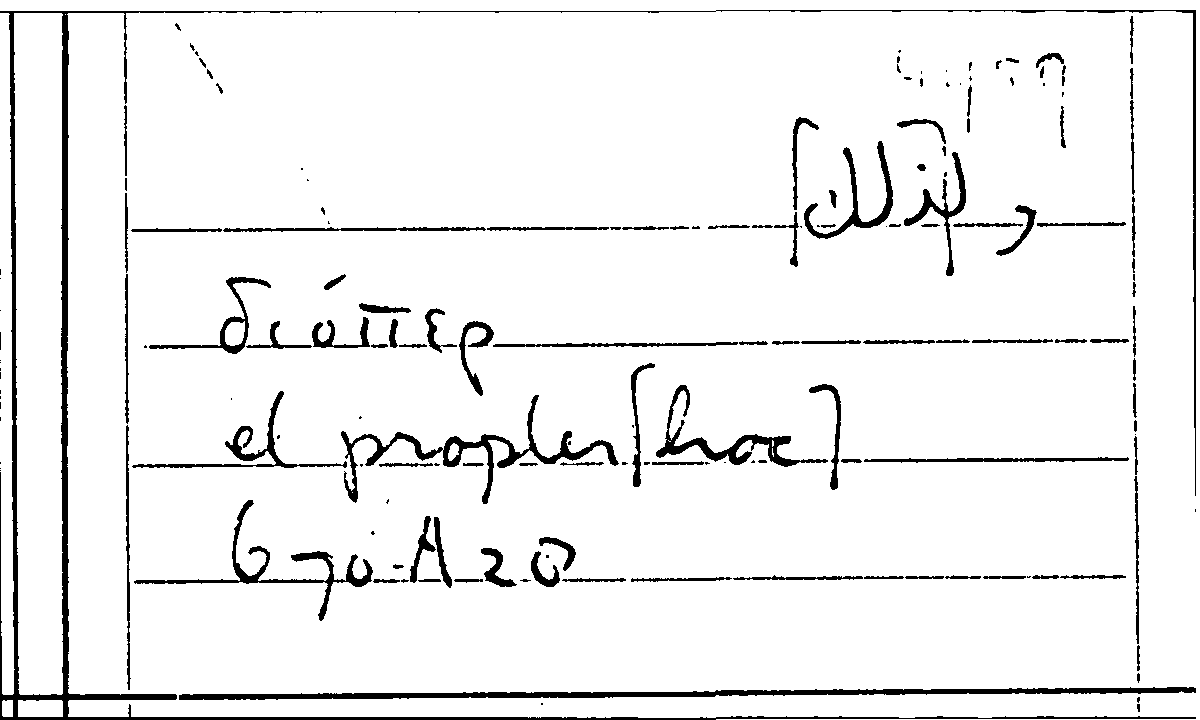 ول[ذلك]
διόπερ
et propter [hoc]
670-A20